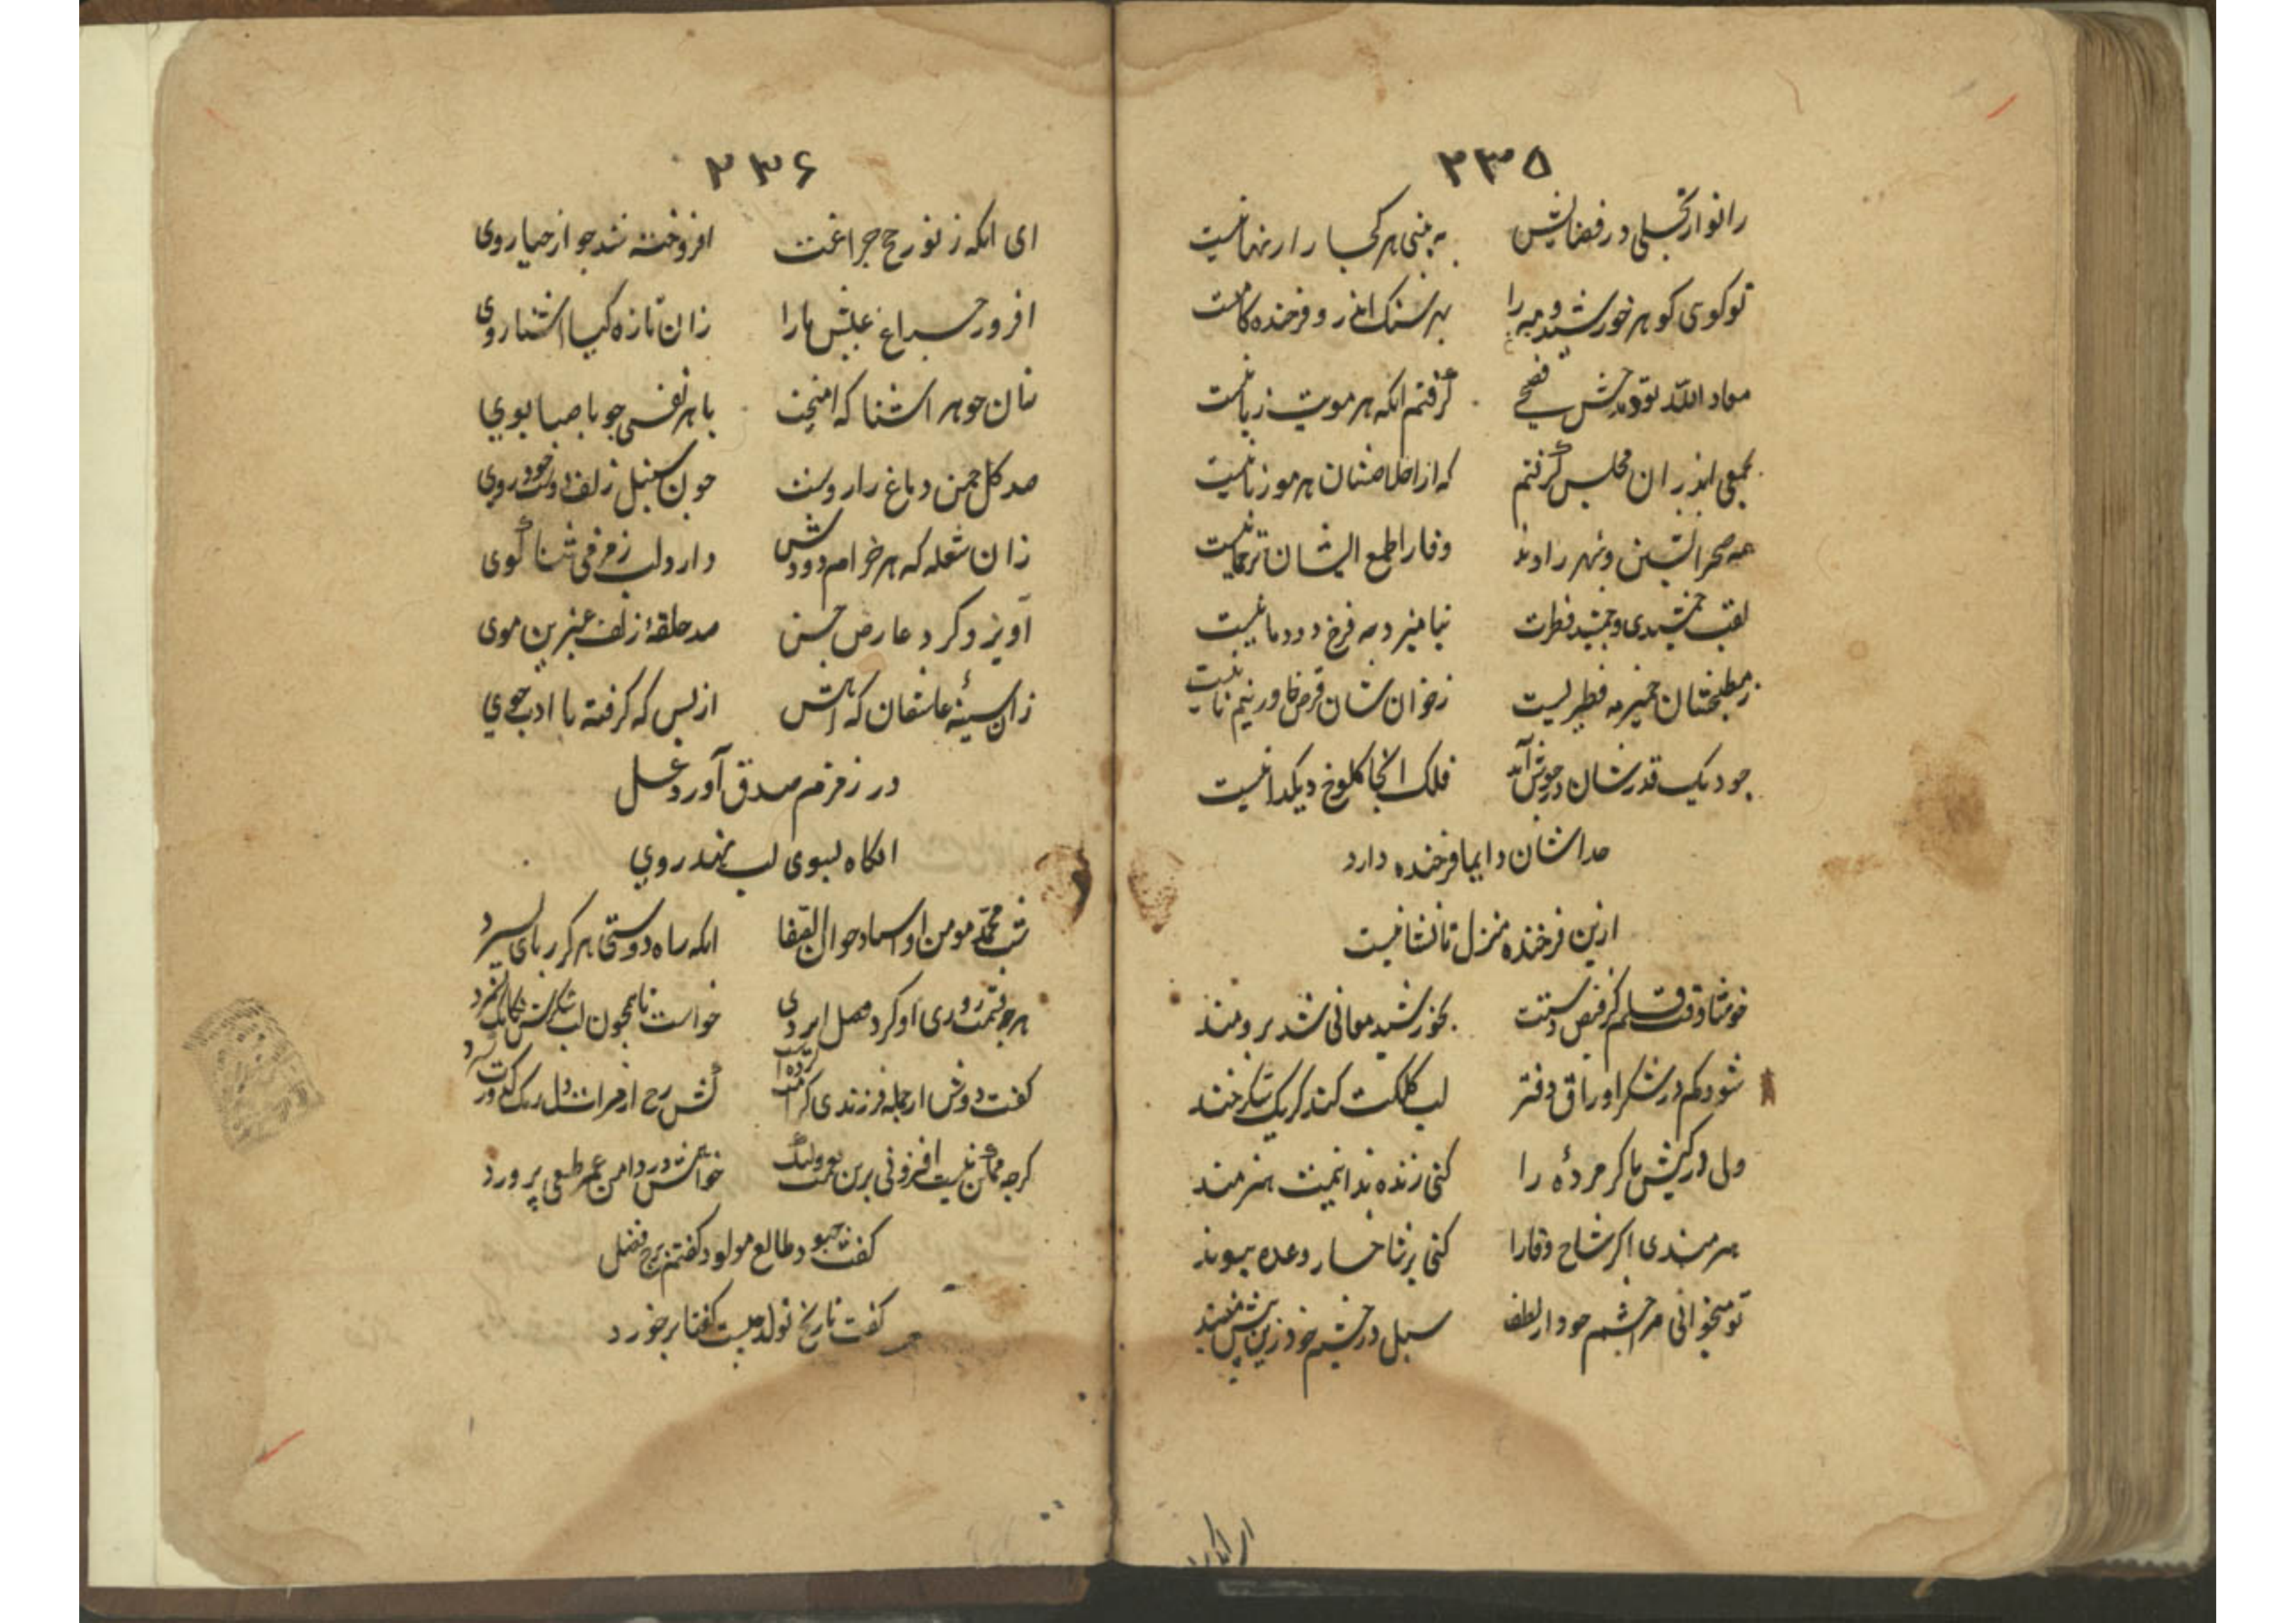 ۲۳۵
ز انوار تجلی در فضایش به بینی هر کجا را ز نهانیست
تو کوی گوهر خورشید و مه را بهر سنک اندر و فرخنده کانیست
معاد الله تو و مدحش فصیحی گرفتم انکه هر مویت زبانیست
بجمعی اندران مجلس گرفتم که از اخلاصشان هر مو زبانیست
همه صحرا نشین و شهر زادند وفا را طبع ایشان ترجمانیست
لقب جمشیدی و جمشید فطرت نیامیزد به فرخ دودمانیست
ز مطبخشان خمیر مه فطیریست ز خوان شان قرص خاور نیم نانیست
جو دیک قدرشان در جوش آید فلک انجا کلوخ دیکدانیست
خداشان دایما فرخنده دارد
ازین فرخنده منزل تا نشانیست
خوشا وقت قلم کز فیض دستت بخورشید معانی شد برومند
شود کم در شکر اوراق دفتر لب کلکت کند کر یک شکرخند
ولی در کیش ما کر مردهٔ را کنی زنده بدانیمت هنرمند
هنرمندی اکر شاخ وفا را کنی بر شاخسار وعده پیوند
تو میخوانی مرا چشم خود از لطف سبل در چشم خود زین بیش مپسند
۲۳۶
ای انکه ز نور رخ جراغت افروخته شد جو از حیا روی
افروز جراغ عیش ما را زان تازه کیا اشنا روی
سان جوهر اشنا که امیخت با هر نفسی جو با صبا بوی
صد کل جمن دماغ را روست جون سنبل زلف دوست خودروی
زان شعله که هر خرام دودش دارد لب زمزمی ثنا گوی
آویزد کرد عارض حسن صد حلقهٔ زلف عنبرین موی
زان سینهٔ عاشقان که اتش از بس که کرفته با ادب خوی
در زمزم صدق آورد غسل
انکاه بسوی لب نهد روی
محمد مومن او انکه راه دوستی هر کز بپای سر
هر جه خواست تا همجون لب
کفت دوش از جمله فرزندی کرامت
کرجه ممکن نیست افزونی برین خواهمش در دامن عمر طبیعی پرورد
کفت جبود طالع مولود کفتم برج فضل
کفت تاریخ تولد جیست کفتا بر خورد